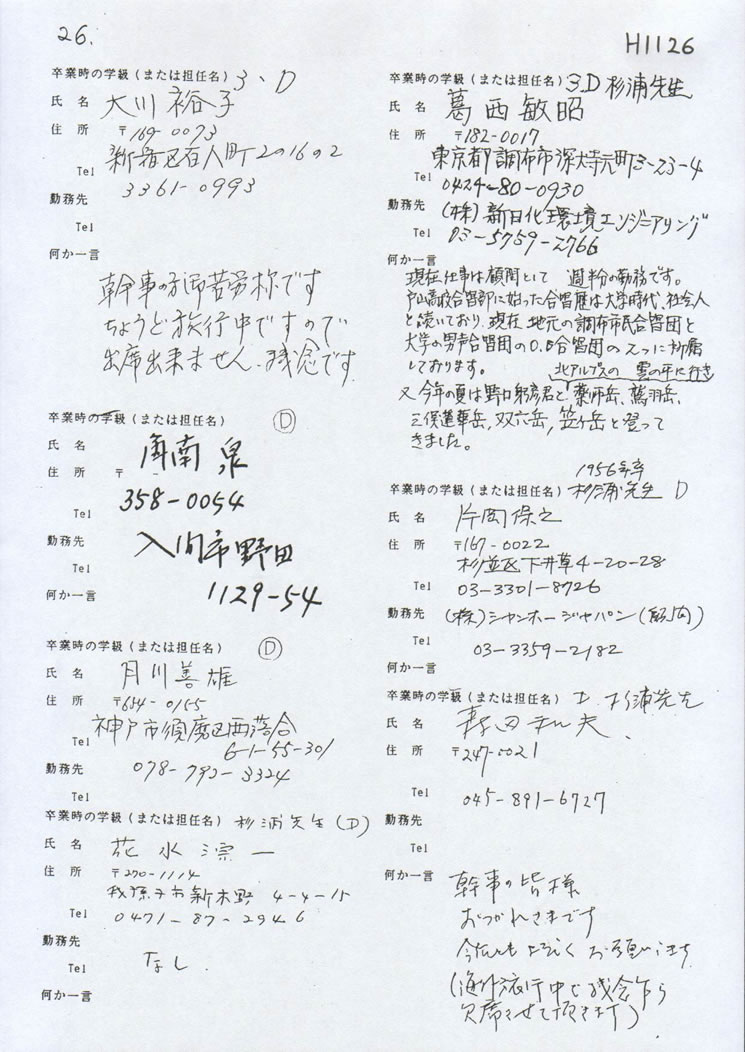 26.
H1126
卒業時の学級（または担任名）3、D
氏 名 大川 裕子
住 所 〒169-0073
新宿区百人町2の16の2
Tel 3361-0993
勤務先
Tel
何か一言
幹事の方御苦労様です
ちょうど旅行中ですので
出席出来ません。残念です
卒業時の学級（または担任名） D
氏 名 角南 泉
住 所 〒
358-0054
Tel
勤務先 入間市野田
Tel
何か一言 1129-54
卒業時の学級（または担任名） D
氏 名 月川善雄
住 所 〒654-0155
神戸市須磨区西落合
6-1-55-301
Tel 078-792-3324
勤務先
Tel
卒業時の学級（または担任名） 杉浦先生（D）
氏 名 花水 一
住 所 〒270-1114
我孫子市新木野 4-4-15
Tel 0471-87-2946
勤務先
Tel なし
何か一言
卒業時の学級（または担任名）3D 杉浦先生
氏 名 葛西敏昭
住 所 〒182-0017
東京都調布市深大寺元町3-23-4
Tel 0424-80-0930
勤務先 （株）新日化環境エンジニアリング
Tel 03-5759-2766
何か一言
現在仕事は顧問として 週半分の勤務です。
戸山高校合唱部に始った合唱歴は大学時代、社会人
と続いており、現在、地元の調布市民合唱団と
大学の男声合唱団のO.B合唱団の2つに所属
しております。
北アルプスの 雲の平に行き
又今年の夏は野口 君と 薬師岳、鷲羽岳、
三俣蓮華岳、双六岳、笠ヶ岳と登って
きました。
1956年卒
卒業時の学級（または担任名） 杉浦先生 D
氏 名 片岡保之
住 所 〒167-0022
杉並区下井草4-20-28
Tel 03-3301-8726
勤務先 （株）シャンホージャパン（ ）
Tel 03-3359-2182
何か一言
卒業時の学級（または担任名） 杉浦先生
氏 名 森田和夫
住 所 〒247-0021
Tel 045-891-6727
勤務先
Tel
何か一言 幹事の皆様
おつかれさまです
今后ともよろしくお願いします
（海外旅行中で残念乍ら
欠席させて頂きます）